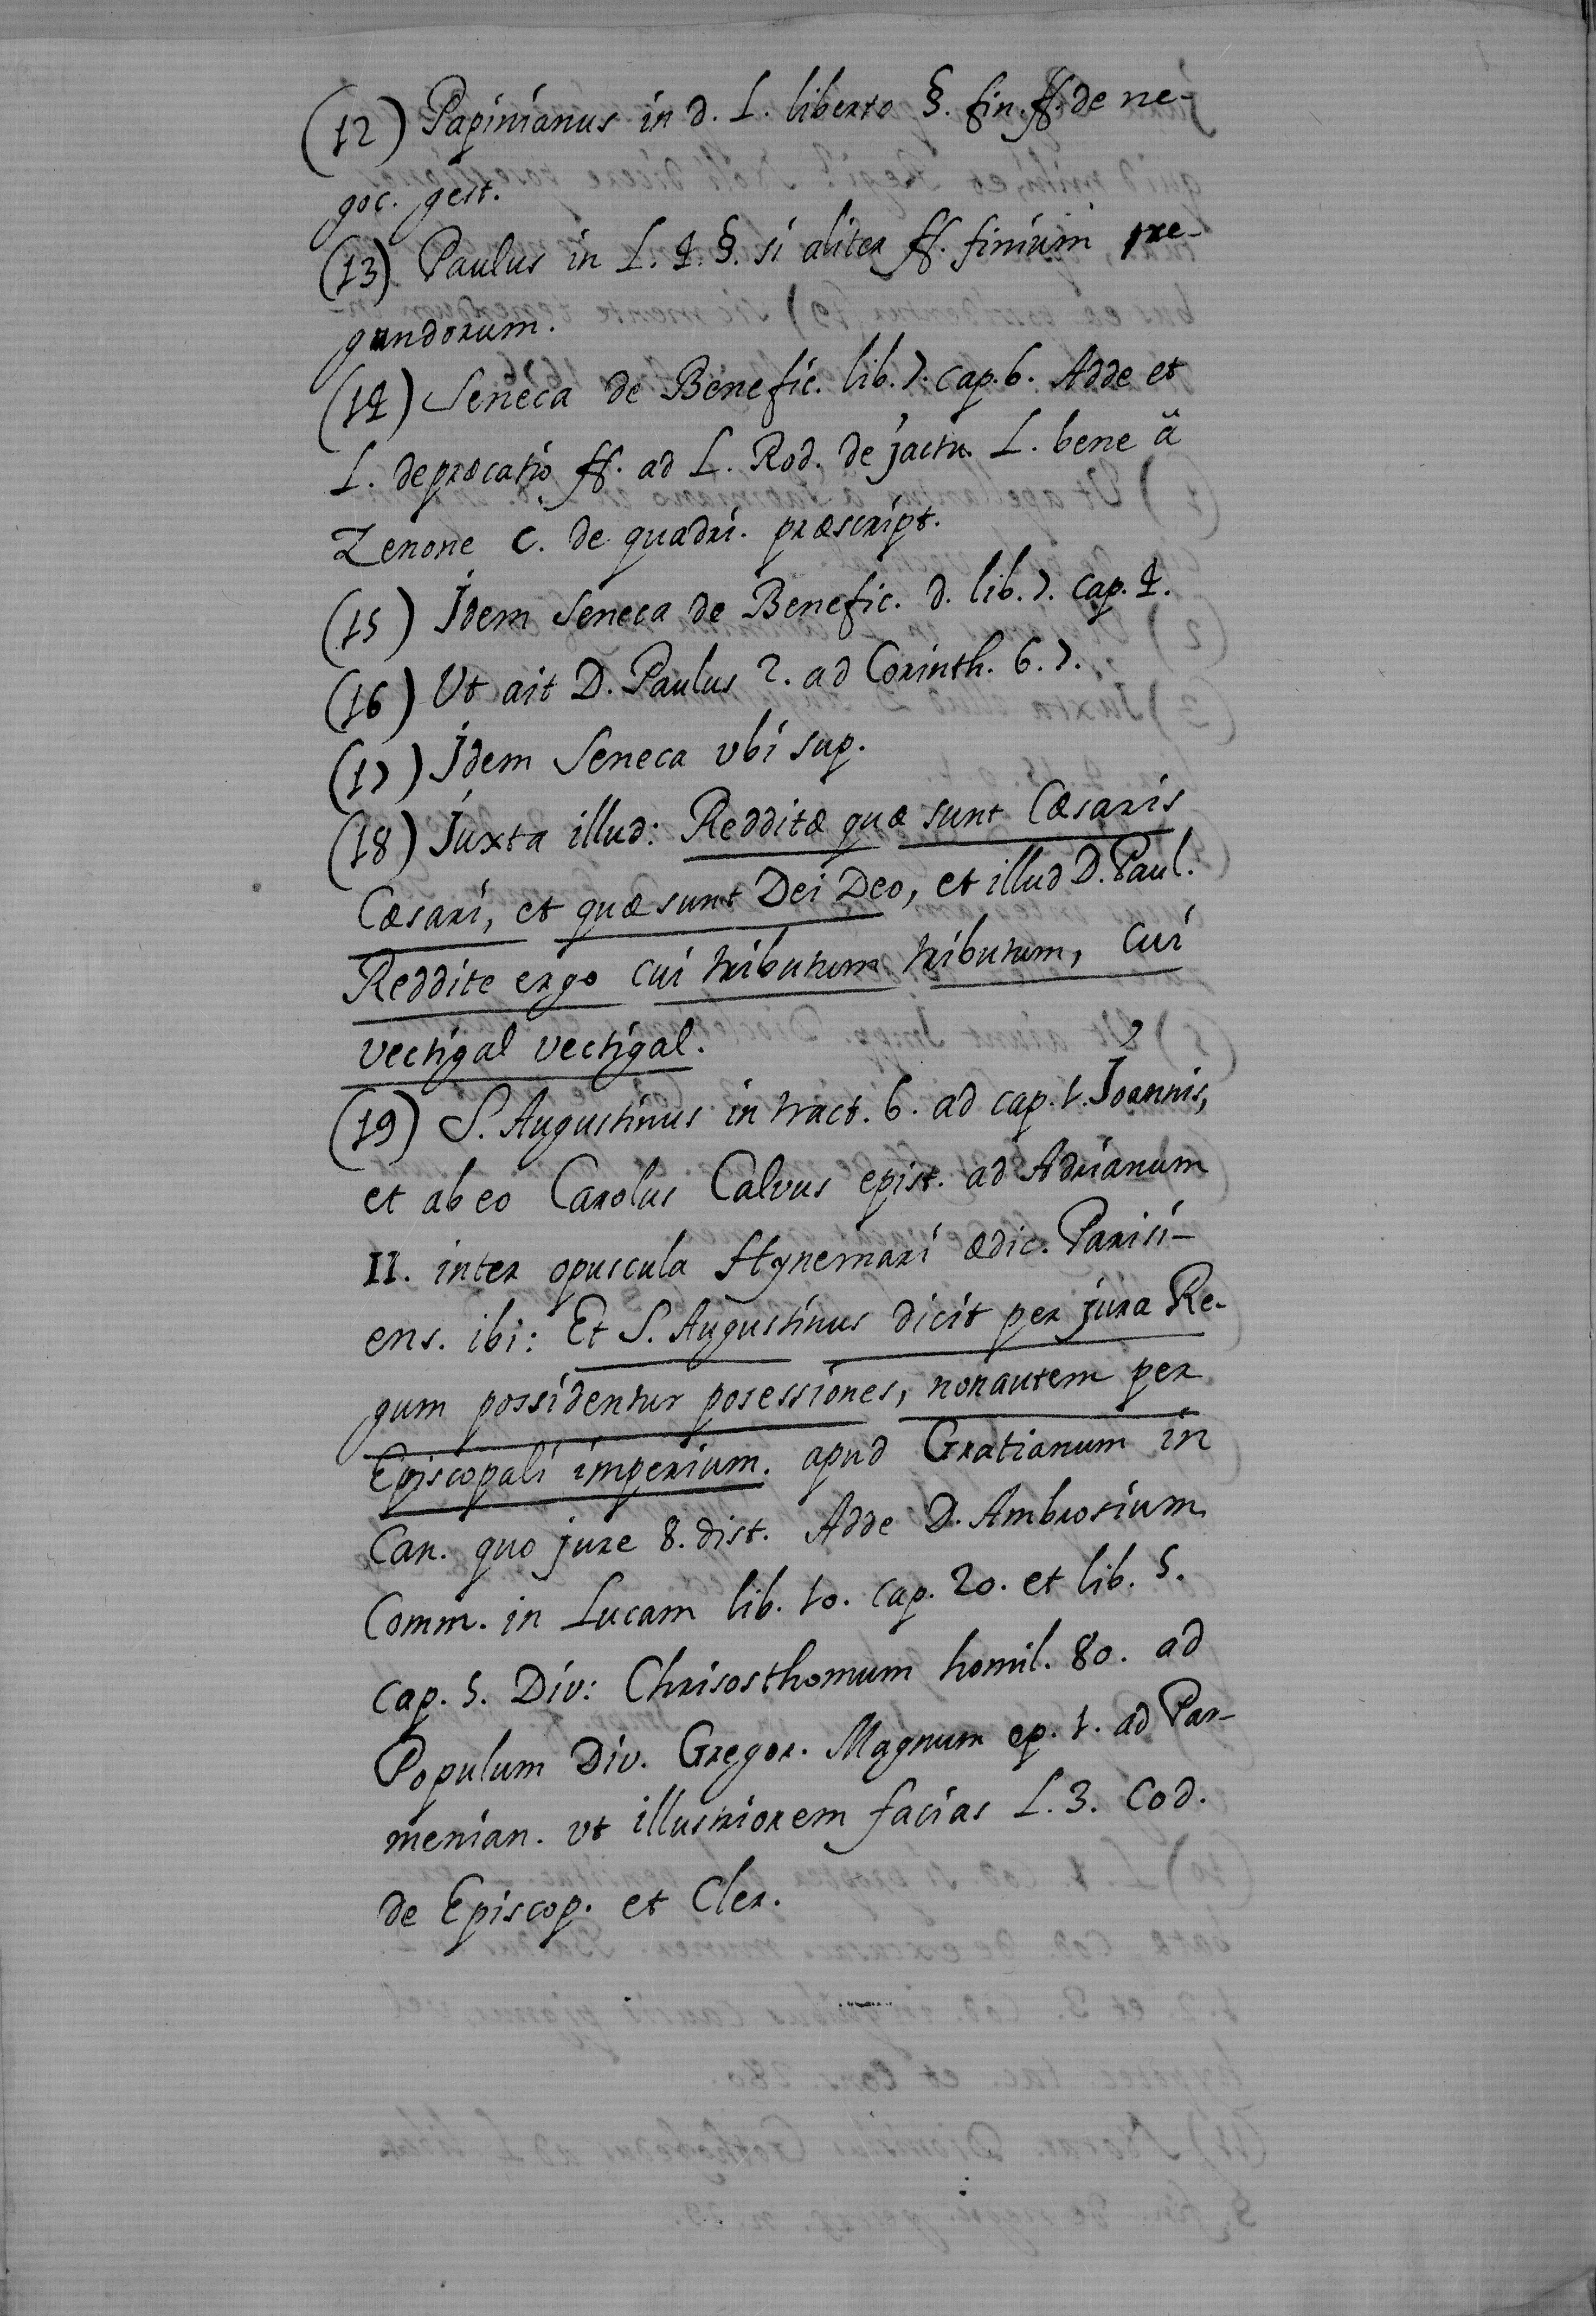 (12) Papinianus in d. L. liberto §. fin. ff. de ne-
goc. gest.
(13) Paulus in L. 4. §. si aliter ff. finium re-
gundorum.
(14) Seneca de Benefic. lib. 7. cap. 6. Adde et
L. deprœcatio ff. ad L. Rod. de jactu L. bene ä
Zenone C. de quadri. prœscript.
(15) Idem Seneca de Benefic. d. lib. 7. cap. 4.
(16) Ut ait D. Paulus 2. ad Corinth. 6. 7.
(17) Idem Seneca vbi sup.
(18) Iuxta illud: Redditæ quæ sunt Cæsaris
Cæsari, et quæ sunt Dei Deo, et illud D. Paul.
Reddite ergo cui tributum tributum, cui
vectigal vectigal.
(19) S. Augustinus in tract. 6. ad cap. 1. Joannis,
et ab eo Carolus Calvus epist. ad Adrianum
II. inter opuscula Hynemari ædic. Parisi-
ens. ibi: Et S. Augustinus dicit per jura Re-
gum possidentur posessiones, non autem per
Episcopali imperium. apud Gratianum in
Can. quo jure 8. dist. Adde D. Ambrosium
Comm. in Lucam lib. 10. cap. 20. et lib. 5.
cap. 5. Div: Chrisosthomum homil. 80. ad
Populum Div. Gregor. Magnum ep. 1. ad Par-
menian. vt illustriorem facias L. 3. Cod.
de Episcop. et Cler.